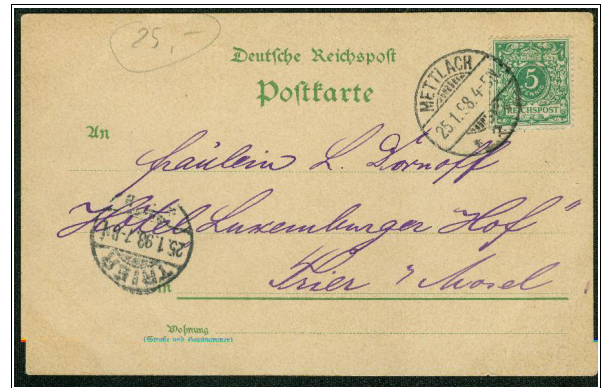 25,-
Deutsche Reichspost
Postkarte
METTLACH
25.1.98.4-5N.
5
REICHSPOST
An
Fräulein L. Dornoff
"Hotel Luxemburger Hof"
TRIER
25.1.98.7-8
in Trier / Mosel
Wohnung
(Straße und Hausnummer)